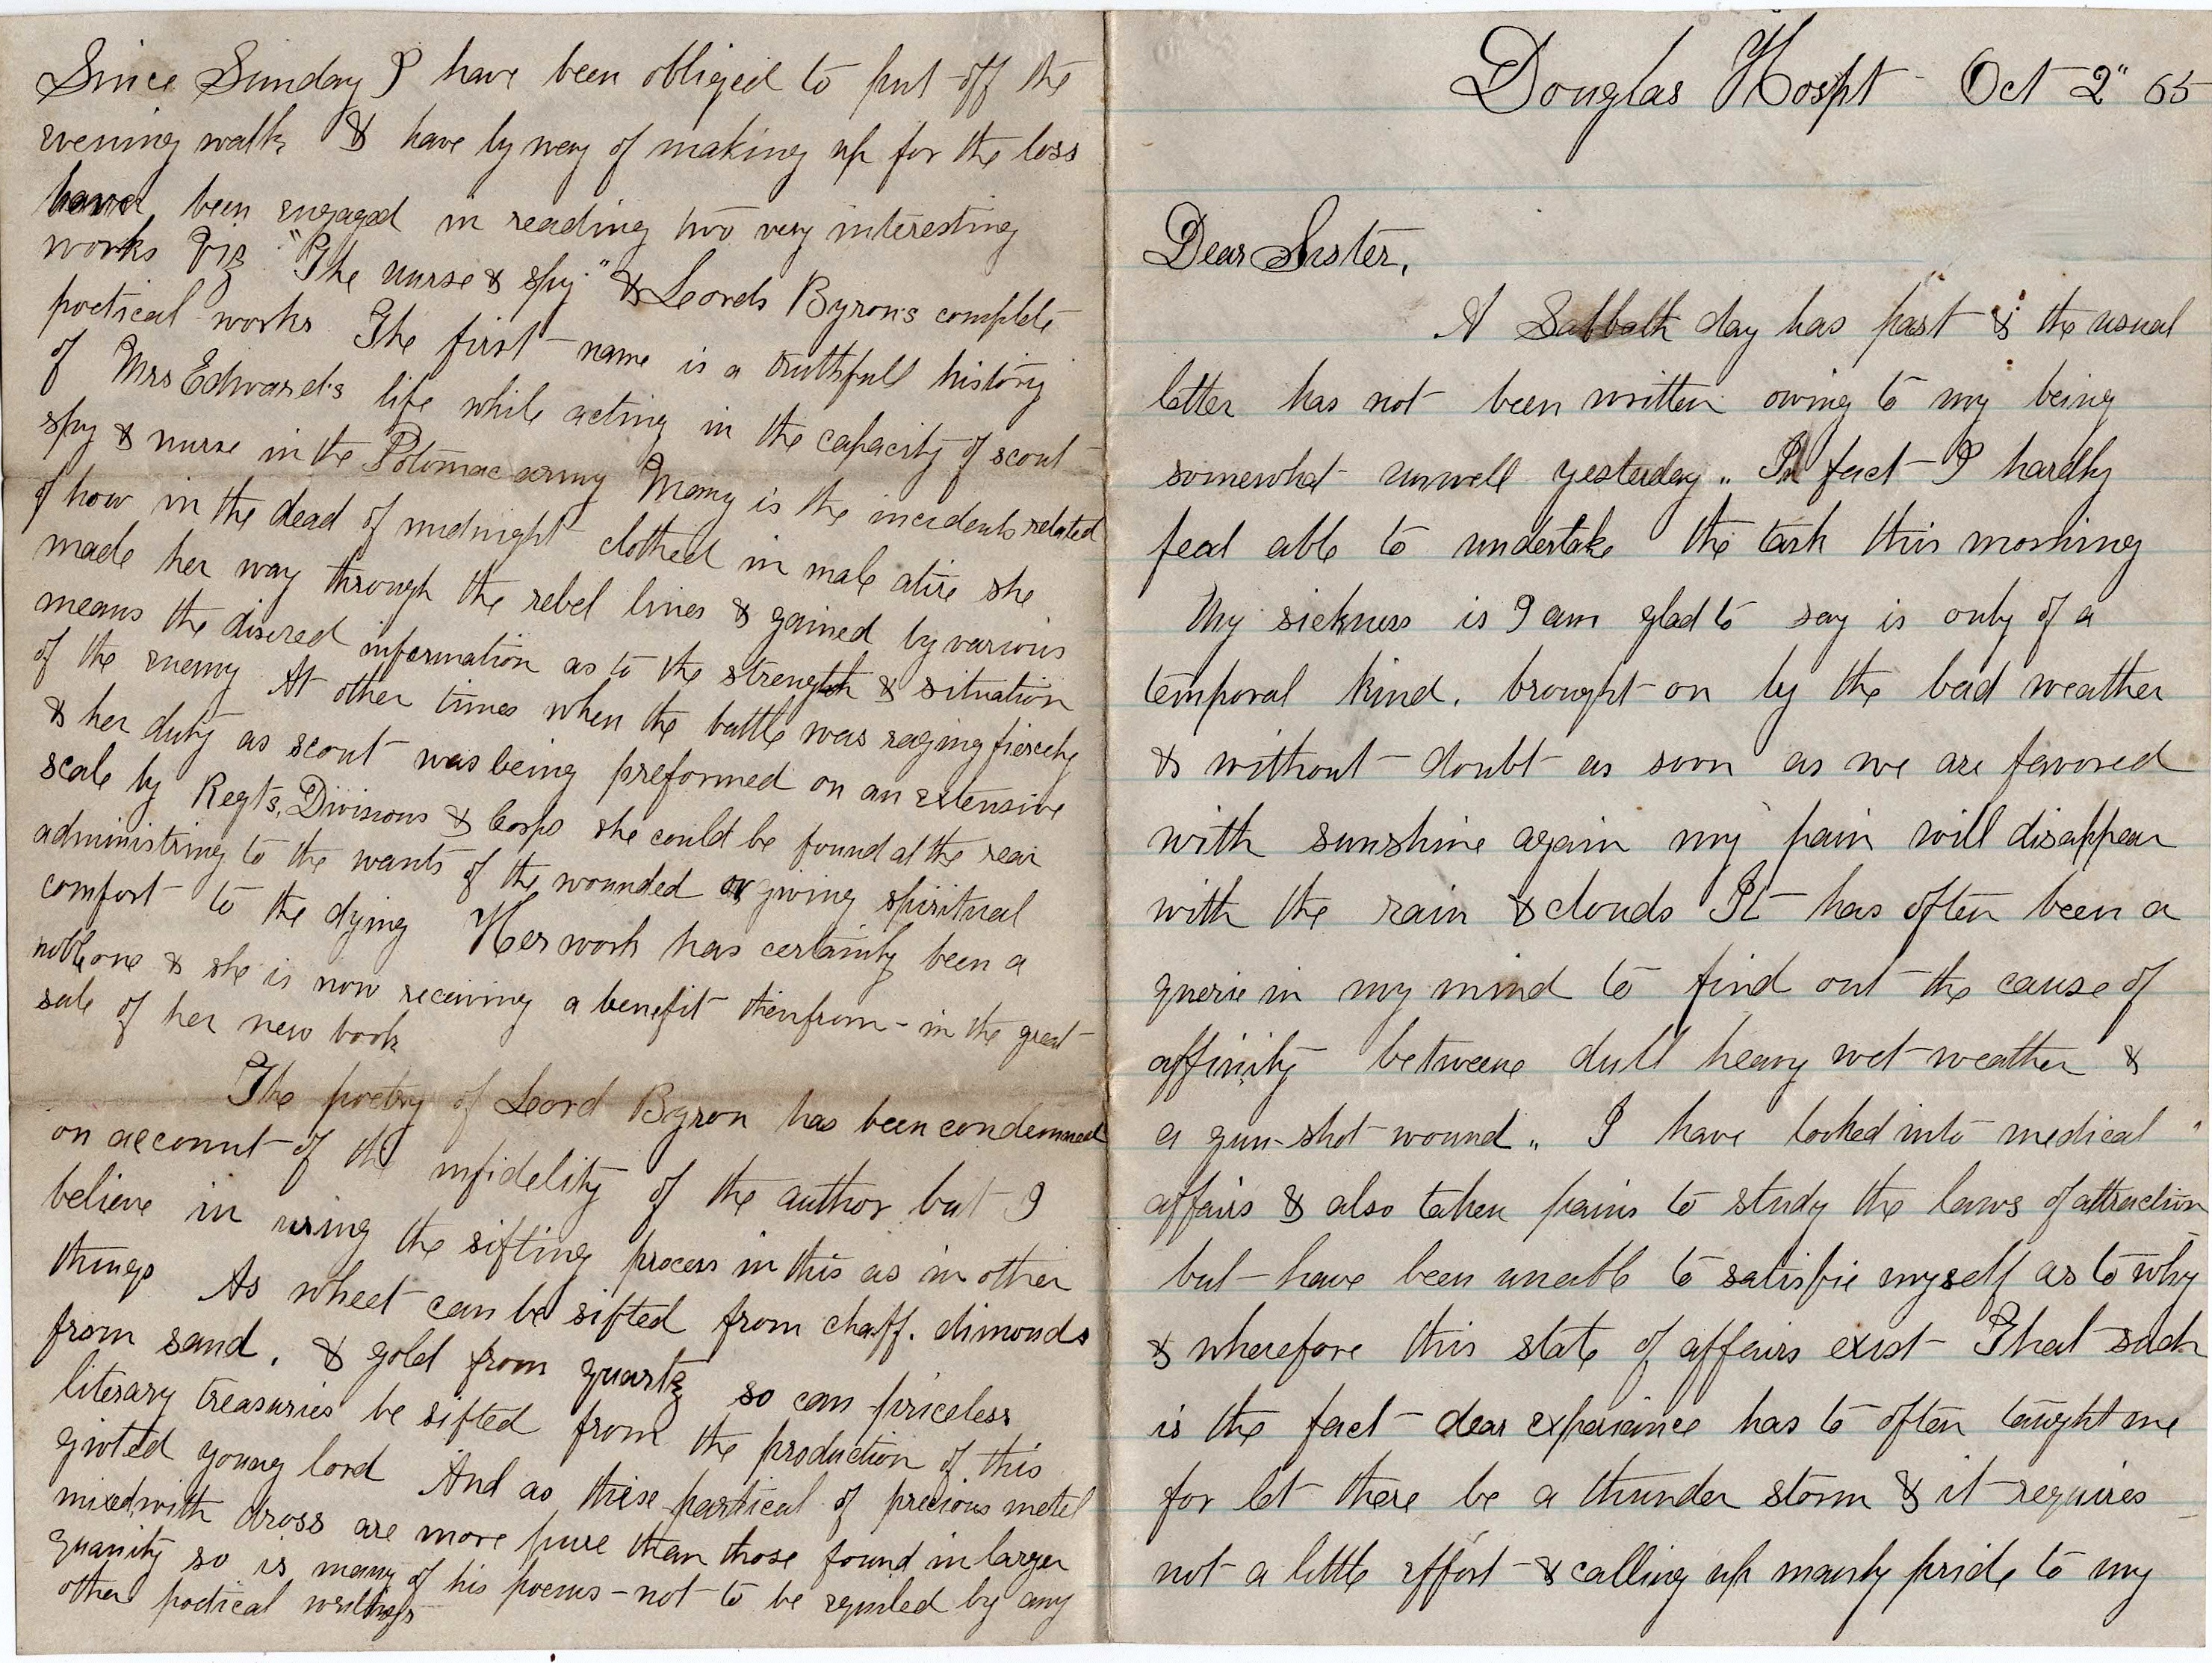 Douglas Hospt Oct 2" 65
Dear Sister,
A Sabbath day has past & the usual
letter has not been written owing to my being
somewhat unwell yesterday „ In fact I hardly
feal able to undertake the task this morning
My sickness is I am glad to say is only of a
temporal kind. brought on by the bad weather
& without doubt as soon as we are favored
with sunshine again my pain will disappear
with the rain & clouds It has often been a
querie in my mind to find out the cause of
affinity betweene dull heavy wet weather &
a gun-shot wound „ I have looked into medical
affairs & also taken pains to study the laws of attraction
but have been uneable to satisfie myself as to why
& wherefore this state of affairs exist That such
is the fact dear experiance has to often taught me
for let there be a thunder storm & it requires
not a little effort & calling up manly pride to my
Since Sunday I have been obliged to put off the
evening walk & have by way of making up for the loss
have been engaged in reading two very interesting
works viz "The nurse & spy" & Lords Byrons complete
poetical works The first name is a truthfull history
of Mrs Edward's life while acting in the capacity of scout
spy & nurse in the Potomac army Many is the incidents related
of how in the dead of midnight clothed in male atire she
made her way through the rebel lines & gained by various
means the disered information as to the strength & situation
of the enemy At other times when the battle was raging fiercely
& her duty as scout was being preformed on an extensive
scale by Regts, Divisions & Corps she could be found at the rear
administring to the wants of the wounded or giving spiritual
comfort to the dying Her work has certainly been a
noble one & she is now receiving a benefit thenfrom - in the great
sale of her new book
The poetry of Leord Byron has been condemned
on account of the infidelity of the author but I
believe in using the sifting process in this as in other
things As wheet can be sifted from chaff. dimonds
from sand. & gold from quartz so can priceless
literary treasuries be sifted from the production of this
gioted young lord And as these partical of precious metel
mixed with dross are more pure than those found in larger
quanity so is many of his poems - not to be equiled by any
other poetical writings